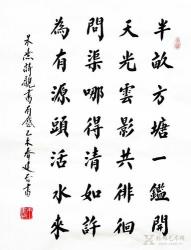 半畝方塘一鑑開
天光雲影共徘徊
問渠哪得清如許
為有源頭活水來
朱熹詩觀書有感乙未春建書